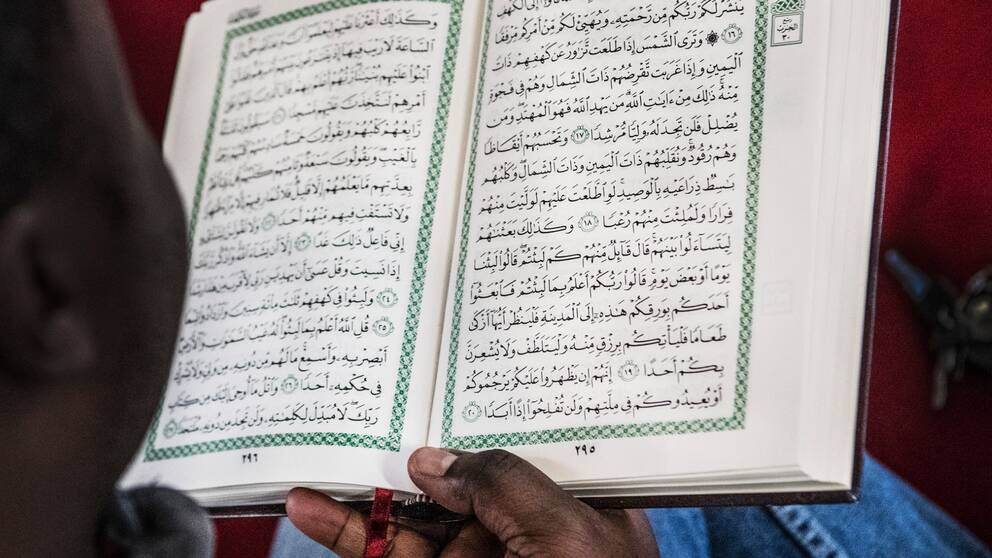 يَنشُرْ لَكُمْ رَبُّكُم مِّن رَّحْمَتِهِۦ وَيُهَيِّئْ لَكُم مِّنْ أَمْرِكُم مِّرْفَقًا
١٦ ۞ وَتَرَى ٱلشَّمْسَ إِذَا طَلَعَت تَّزَٰوَرُ عَن كَهْفِهِمْ ذَاتَ
ٱلْيَمِينِ وَإِذَا غَرَبَت تَّقْرِضُهُمْ ذَاتَ ٱلشِّمَالِ وَهُمْ فِى فَجْوَةٍ
مِّنْهُ ۚ ذَٰلِكَ مِنْ ءَايَٰتِ ٱللَّهِ ۗ مَن يَهْدِ ٱللَّهُ فَهُوَ ٱلْمُهْتَدِ ۖ وَمَن
يُضْلِلْ فَلَن تَجِدَ لَهُۥ وَلِيًّا مُّرْشِدًا ١٧ وَتَحْسَبُهُمْ أَيْقَاظًا
وَهُمْ رُقُودٌ ۚ وَنُقَلِّبُهُمْ ذَاتَ ٱلْيَمِينِ وَذَاتَ ٱلشِّمَالِ ۖ وَكَلْبُهُم
بَٰسِطٌ ذِرَاعَيْهِ بِٱلْوَصِيدِ ۚ لَوِ ٱطَّلَعْتَ عَلَيْهِمْ لَوَلَّيْتَ مِنْهُمْ
فِرَارًا وَلَمُلِئْتَ مِنْهُمْ رُعْبًا ١٨ وَكَذَٰلِكَ بَعَثْنَٰهُمْ
لِيَتَسَآءَلُوا۟ بَيْنَهُمْ ۚ قَالَ قَآئِلٌ مِّنْهُمْ كَمْ لَبِثْتُمْ ۖ قَالُوا۟ لَبِثْنَا
يَوْمًا أَوْ بَعْضَ يَوْمٍ ۚ قَالُوا۟ رَبُّكُمْ أَعْلَمُ بِمَا لَبِثْتُمْ فَٱبْعَثُوٓا۟
أَحَدَكُم بِوَرِقِكُمْ هَٰذِهِۦٓ إِلَى ٱلْمَدِينَةِ فَلْيَنظُرْ أَيُّهَآ أَزْكَىٰ
طَعَامًا فَلْيَأْتِكُم بِرِزْقٍ مِّنْهُ وَلْيَتَلَطَّفْ وَلَا يُشْعِرَنَّ
بِكُمْ أَحَدًا ١٩ إِنَّهُمْ إِن يَظْهَرُوا۟ عَلَيْكُمْ يَرْجُمُوكُمْ
أَوْ يُعِيدُوكُمْ فِى مِلَّتِهِمْ وَلَن تُفْلِحُوٓا۟ إِذًا أَبَدًا ٢٠
٢٩٥
ربع
الحزب
٣٠
وَكَذَٰلِكَ أَعْثَرْنَا عَلَيْهِمْ لِيَعْلَمُوٓا۟
ٱلسَّاعَةَ لَا رَيْبَ فِيهَآ إِذْ يَتَنَٰزَعُونَ بَيْنَهُمْ
ٱبْنُوا۟ عَلَيْهِم بُنْيَٰنًا ۖ رَّبُّهُمْ أَعْلَمُ بِهِمْ ۚ قَالَ ٱلَّذِينَ
أَمْرِهِمْ لَنَتَّخِذَنَّ عَلَيْهِم مَّسْجِدًا ٢١ سَيَقُولُونَ ثَلَٰثَةٌ
رَّابِعُهُمْ كَلْبُهُمْ وَيَقُولُونَ خَمْسَةٌ سَادِسُهُمْ كَلْبُهُمْ
بِٱلْغَيْبِ ۖ وَيَقُولُونَ سَبْعَةٌ وَثَامِنُهُمْ كَلْبُهُمْ
بِعِدَّتِهِم مَّا يَعْلَمُهُمْ إِلَّا قَلِيلٌ ۗ فَلَا تُمَارِ فِيهِمْ إِلَّا مِرَآءً
وَلَا تَسْتَفْتِ فِيهِم مِّنْهُمْ أَحَدًا ٢٢ وَلَا تَقُولَنَّ
إِنِّى فَاعِلٌ ذَٰلِكَ غَدًا ٢٣ إِلَّآ أَن يَشَآءَ ٱللَّهُ ۚ وَٱذْكُر رَّبَّكَ
إِذَا نَسِيتَ وَقُلْ عَسَىٰٓ أَن يَهْدِيَنِ رَبِّى لِأَقْرَبَ مِنْ هَٰذَا رَشَدًا
٢٤ وَلَبِثُوا۟ فِى كَهْفِهِمْ ثَلَٰثَ مِا۟ئَةٍ سِنِينَ وَٱزْدَادُوا۟
٢٥ قُلِ ٱللَّهُ أَعْلَمُ بِمَا لَبِثُوا۟ ۖ لَهُۥ غَيْبُ ٱلسَّمَٰوَٰتِ وَٱلْأَرْضِ ۖ
أَبْصِرْ بِهِۦ وَأَسْمِعْ ۚ مَا لَهُم مِّن دُونِهِۦ مِن وَلِىٍّ وَلَا يُشْرِكُ
فِى حُكْمِهِۦٓ أَحَدًا ٢٦ وَٱتْلُ مَآ أُوحِىَ إِلَيْكَ مِن كِتَابِ
رَبِّكَ ۖ لَا مُبَدِّلَ لِكَلِمَٰتِهِۦ وَلَن تَجِدَ مِن دُونِهِۦ
٢٩٦